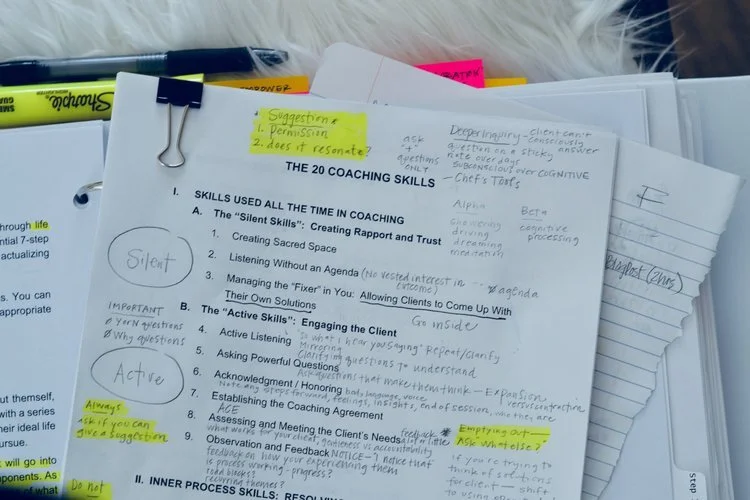 Sharpie
SME
GUA
POWER
Suggestion
1. Permission
2. does it resonate?
ask
"+"
questions
ONLY
Deeper Inquiry - client can't
consciously
question on a sticky answer
note over days
SUBCONSCIOUS over COGNITIVE
- Chef's Tools
THE 20 COACHING SKILLS
Alpha
showering
driving
dreaming
meditation
Beta
cognitive
processing
I. SKILLS USED ALL THE TIME IN COACHING
A. The "Silent Skills": Creating Rapport and Trust
1. Creating Sacred Space
2. Listening Without an Agenda (No vested interest in outcome) -- Ø agenda
3. Managing the "Fixer" in You: Allowing Clients to Come Up With
Their Own Solutions
Go inside
Silent
B. The "Active Skills": Engaging the Client
4. Active Listening "So what I hear you saying" Repeat/clarify
Mirroring
Clarifying questions to understand
5. Asking Powerful Questions
Ask questions that make them think - Expansion
versus contraction
6. Acknowledgment / Honoring bod, language, voice
Note any steps forward, feelings, insights, end of session, who they are
7. Establishing the Coaching Agreement
ACE
8. Assessing and Meeting the Client's Needs
feedback
a lot or little
what works for your client, gentleness vs accountability
9. Observation and Feedback NOTICE - I notice that
feedback on how your experiencing them
is process working - progress?
road blocks?
recurring themes?
II. INNER PROCESS SKILLS:
IMPORTANT
Ø Y or N questions
Ø Why questions
Active
Always
ask if you can
give a suggestion
Do not
* Emptying Out
Ask What else?
if you're trying to
think of solutions
for client - shift
to using
F
(2hrs)
Step
through life
ential 7-step
actualizing
s. You can
appropriate
out themself,
with a series
their ideal life
ursue.
will go into
ponents. As